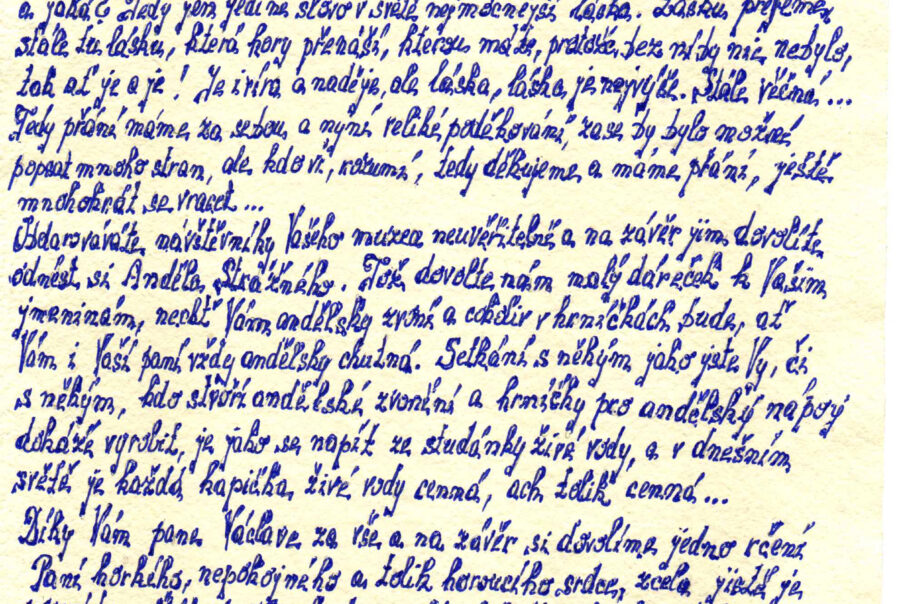 a jaká? Tedy jen jediné slovo v světě nejmocnější láska. Lásku přejeme
stále tu lásku, která hory přenáší, kterou máte, protože bez ní by nic nebylo,
tak ať je a je! Je i víra a naděje, ale láska, láska je nejvýše. Stále věčná...
Tedy přání máme za sebou a nyní veliké poděkování, zase by bylo možné
popsat mnoho stran, ale kdo ví, rozumí, tedy děkujeme a máme přání, ještě
mnohokrát se vracet...
Obdarováváte návštěvníky Vašeho muzea neuvěřitelně a na závěr jim dovolíte
odnést si Anděla Strážného. Tož dovolte nám malý dáreček k Vašim
jmeninám, nechť Vám andělsky zvoní a cokoliv v hrníčkách bude, ať
Vám i Vaší paní vždy andělsky chutná. Setkání s někým jako jste Vy, či
s někým, kdo stvoří andělské zvonění a hrníčky pro andělský nápoj
dokáže vyrobit, je jako se napít ze studánky živé vody, a v dnešním
světě je každá kapička živé vody cenná, ach tolik cenná...
Díky Vám pane Václave za vše a na závěr si dovolíme jedno rčení
Paní horkého, nepokojného a tolik horoucího srdce, zcela jistě je